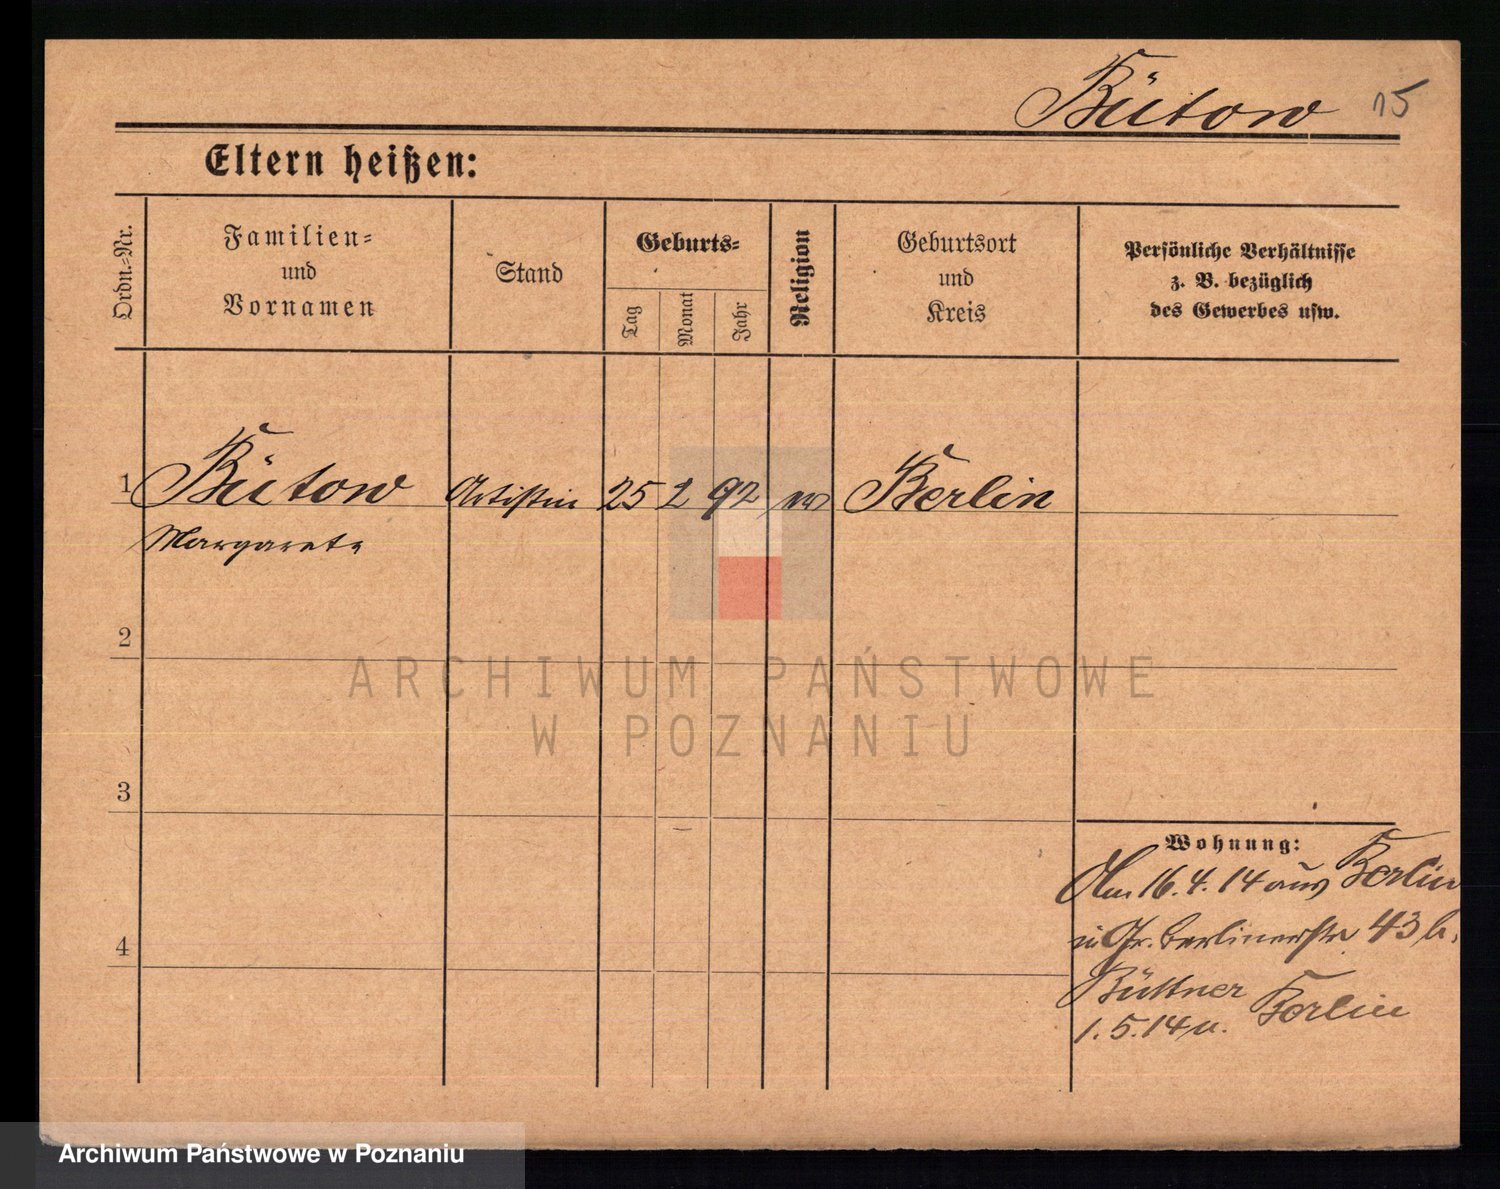 Bütow 15
Eltern heißen:
Ordn.-Nr.
Familien-
und
Vornamen
Stand
Geburts-
Tag
Monat
Jahr
Religion
Geburtsort
und
Kreis
Persönliche Verhältnisse
z. B. bezüglich
des Gewerbes usw.
1 Bütow Artistin 25 2 92 ev Berlin
Margarete
2
3
4
Wohnung:
Am 16.4.14 aus Berlin
in Gr. Berlinerstr 43 b.
Büttner
1.5.14 n. Berlin
ARCHIWUM PAŃSTWOWE
W POZNANIU
Archiwum Państwowe w Poznaniu